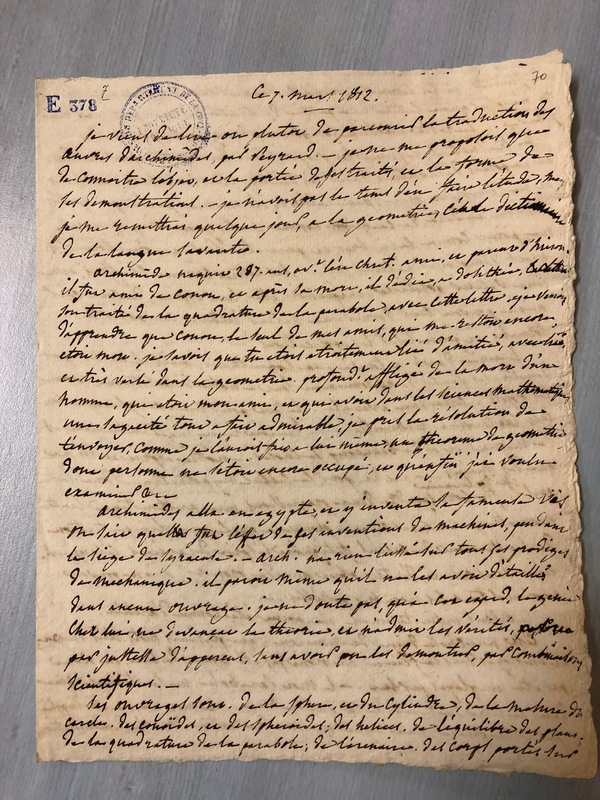 E 378
7
70
Ce 7. mars 1812.
je viens de lire ou plutot de parcourir la traduction des
œuvres d'archimedes, par Peyrard. — je ne me proposois que
de connoitre l'objet, et la portée de ses traités, et la forme de
ses demonstrations. — je n'avois pas le tems d'en faire l'étude,
je me remettrai quelque jour, a la geometrie, c'est le dictionnaire
de la langue savante.
archimede naquit 287. ans, av.t l'ère Chret. ami, et parent d'hieron,
il fut ami de conon, et après sa mort, il dédia, a dosithée,
son traité de la quadrature de la parabole, avec cette lettre, je venois
d'apprendre que conon, le seul de mes amis, qui me restoit encore,
etoit mort. je savois que tu etois etroitement lié d'amitié, avec lui,
et très versé dans la geometrie. profond.t affligé de la mort d'un
homme, qui etoit mon ami, et qui avoit dans les sciences mathematiques
une sagacité tout a fait admirable, je pris la résolution de
t'envoyer, comme je l'aurois fait a lui même, un theoreme de geometrie
dont personne ne s'etoit encore occupé, et qu'enfin j'ai voulu
examiner &c
archimedes alla en egypte, et y inventa la fameuse vis
on sait quelles fut l'effet de ses inventions de machines, pendant
le siege de syracuse. — arch. n'a rien laissé sur tous ses prodiges
de mechanique. il paroit même qu'il ne les avoit détaillés
dans aucun ouvrage. je ne doute pas, qu'a cet egard, le genie
chez lui, ne devançat la theorie, et n'admit les vérités,
par justesse d'apperçu, sans avoir pu les demontrer, par combinaisons
scientifiques. —
ses ouvrages sont. de la sphere, et du cylindre, de la mesure du
cercle. des conoïdes, et des spheroïdes; des helices. de l'équilibre des plans.
de la quadrature de la parabole; de l'arenaire. des corps portés sur